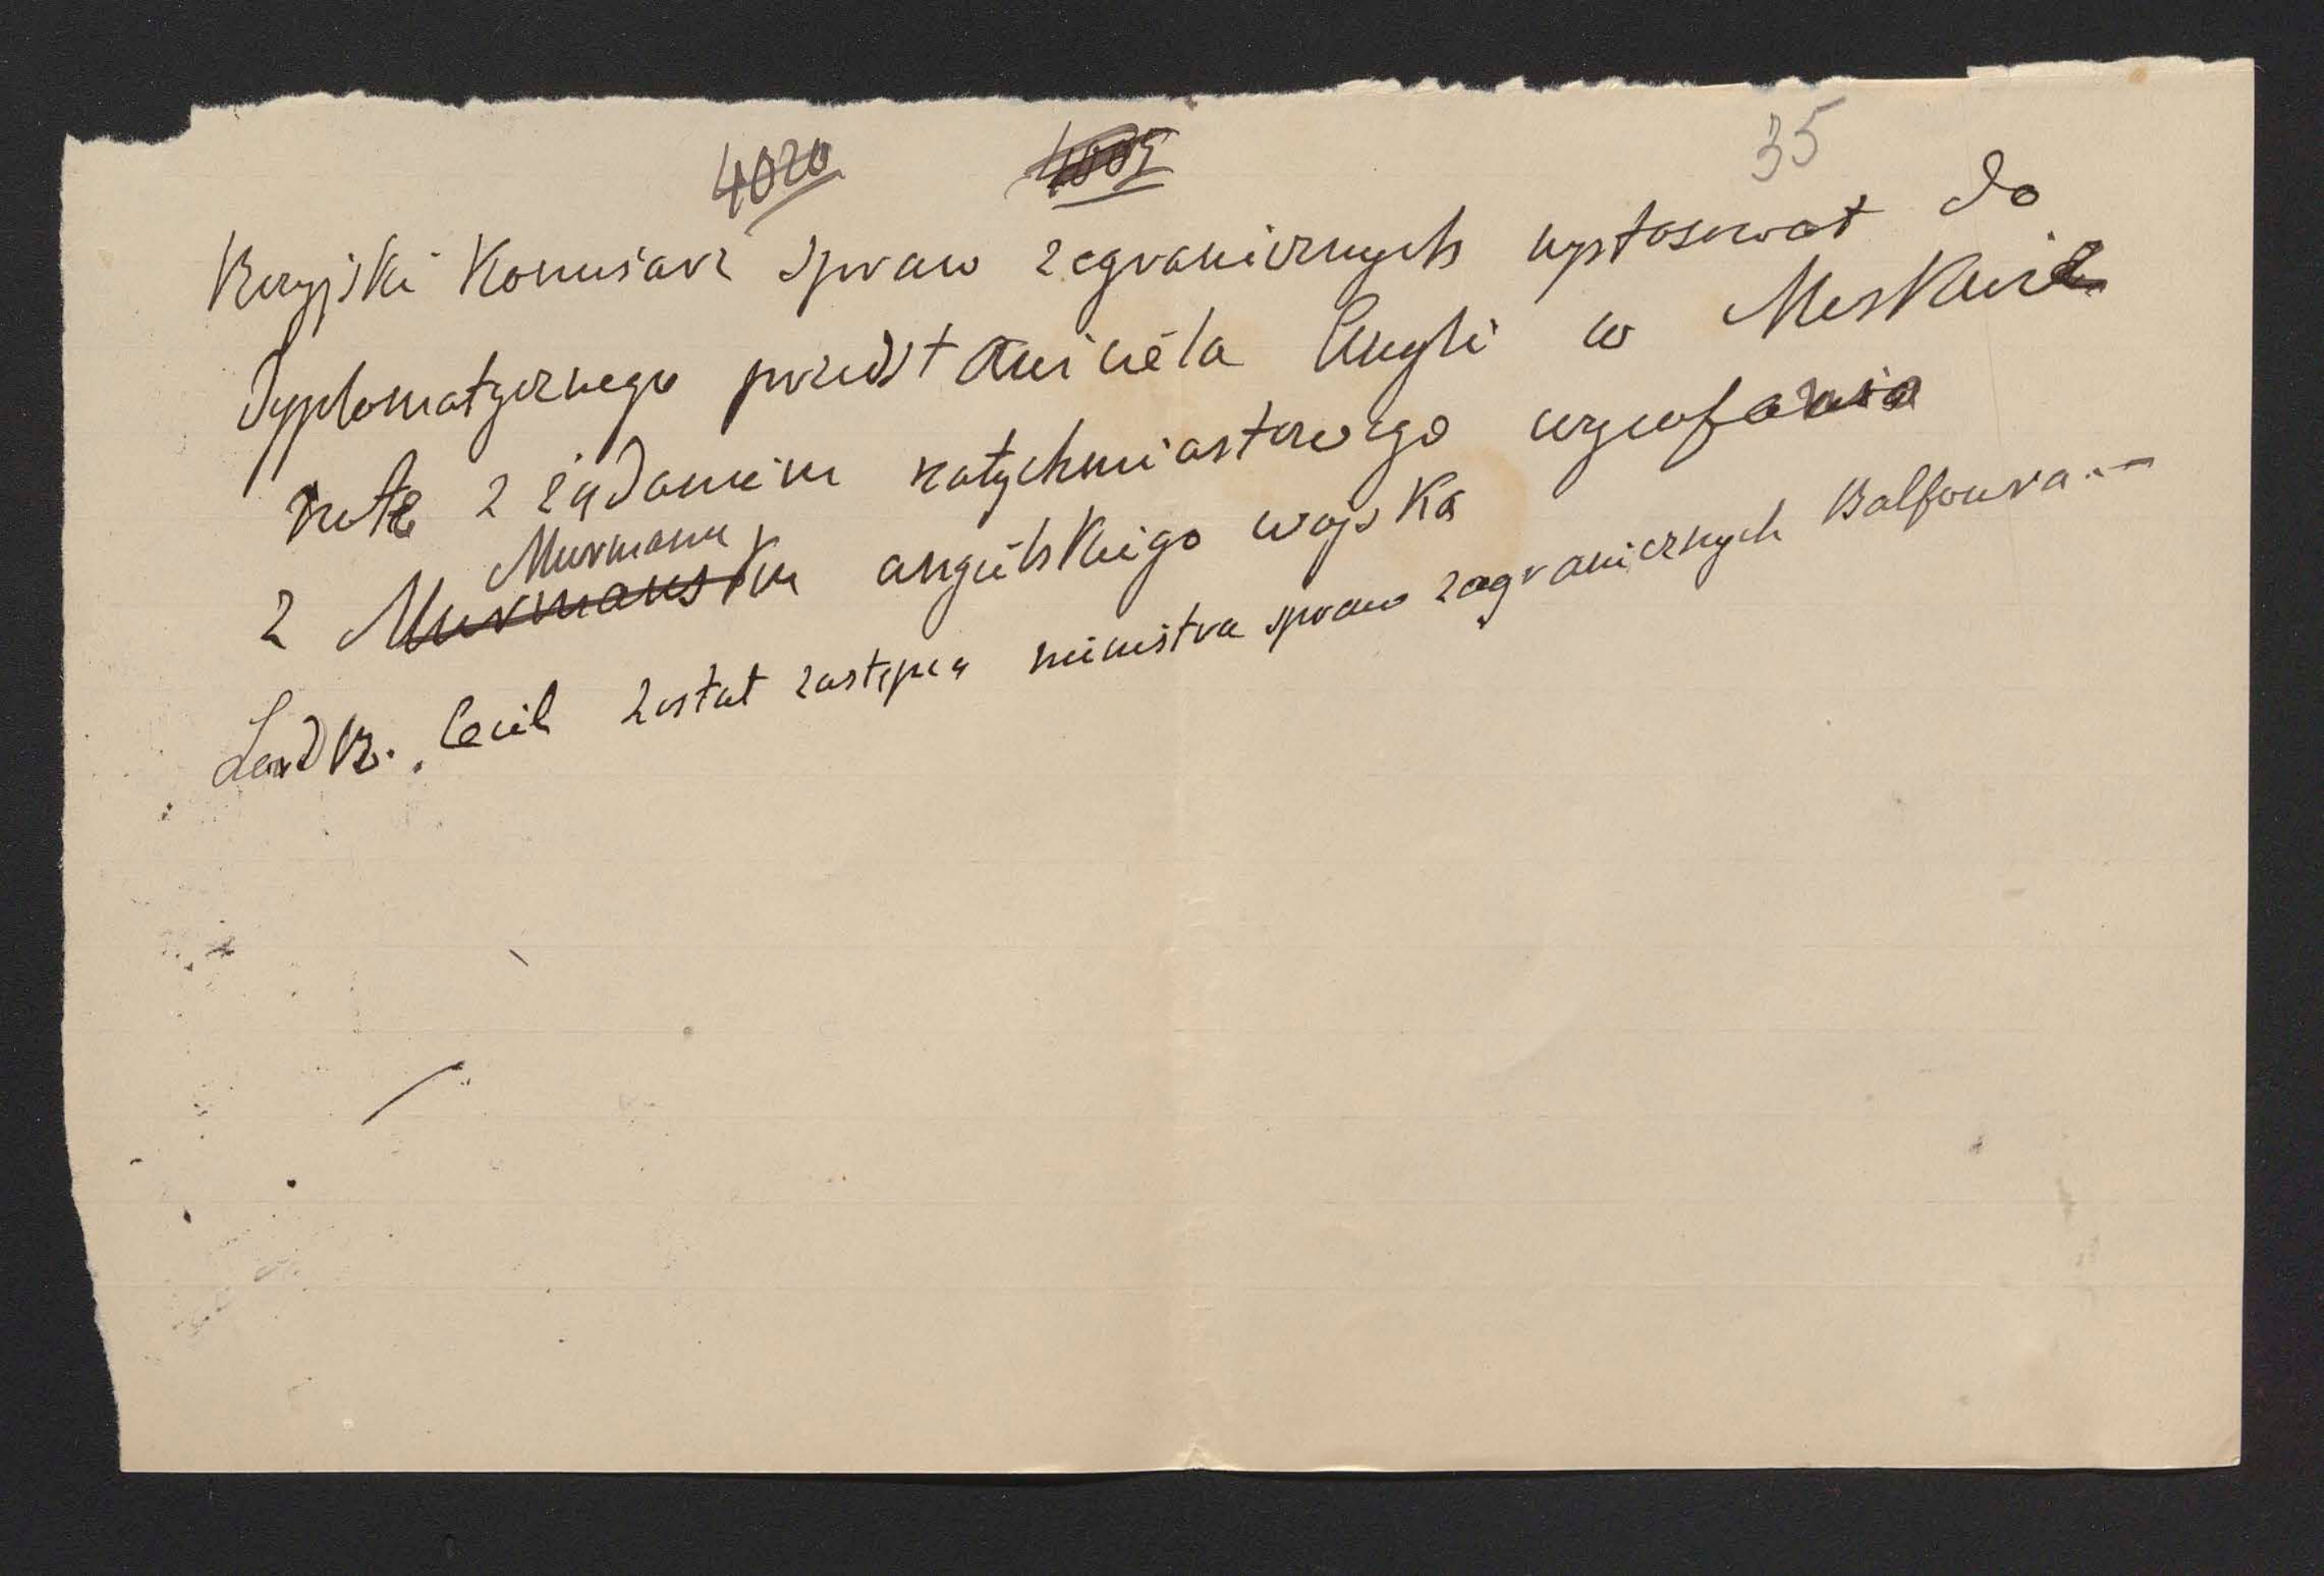 4020 35
Rosyjski Komisarz spraw zagranicznych wystosował do
dyplomatycznego przedstawiciela Anglii w Moskwie
notę z żądaniem natychmiastowego wycofania
Murmanu
z Murmańska angielskiego wojska
Lord R. Cecil został zastępcą ministra spraw zagranicznych Balfoura.—